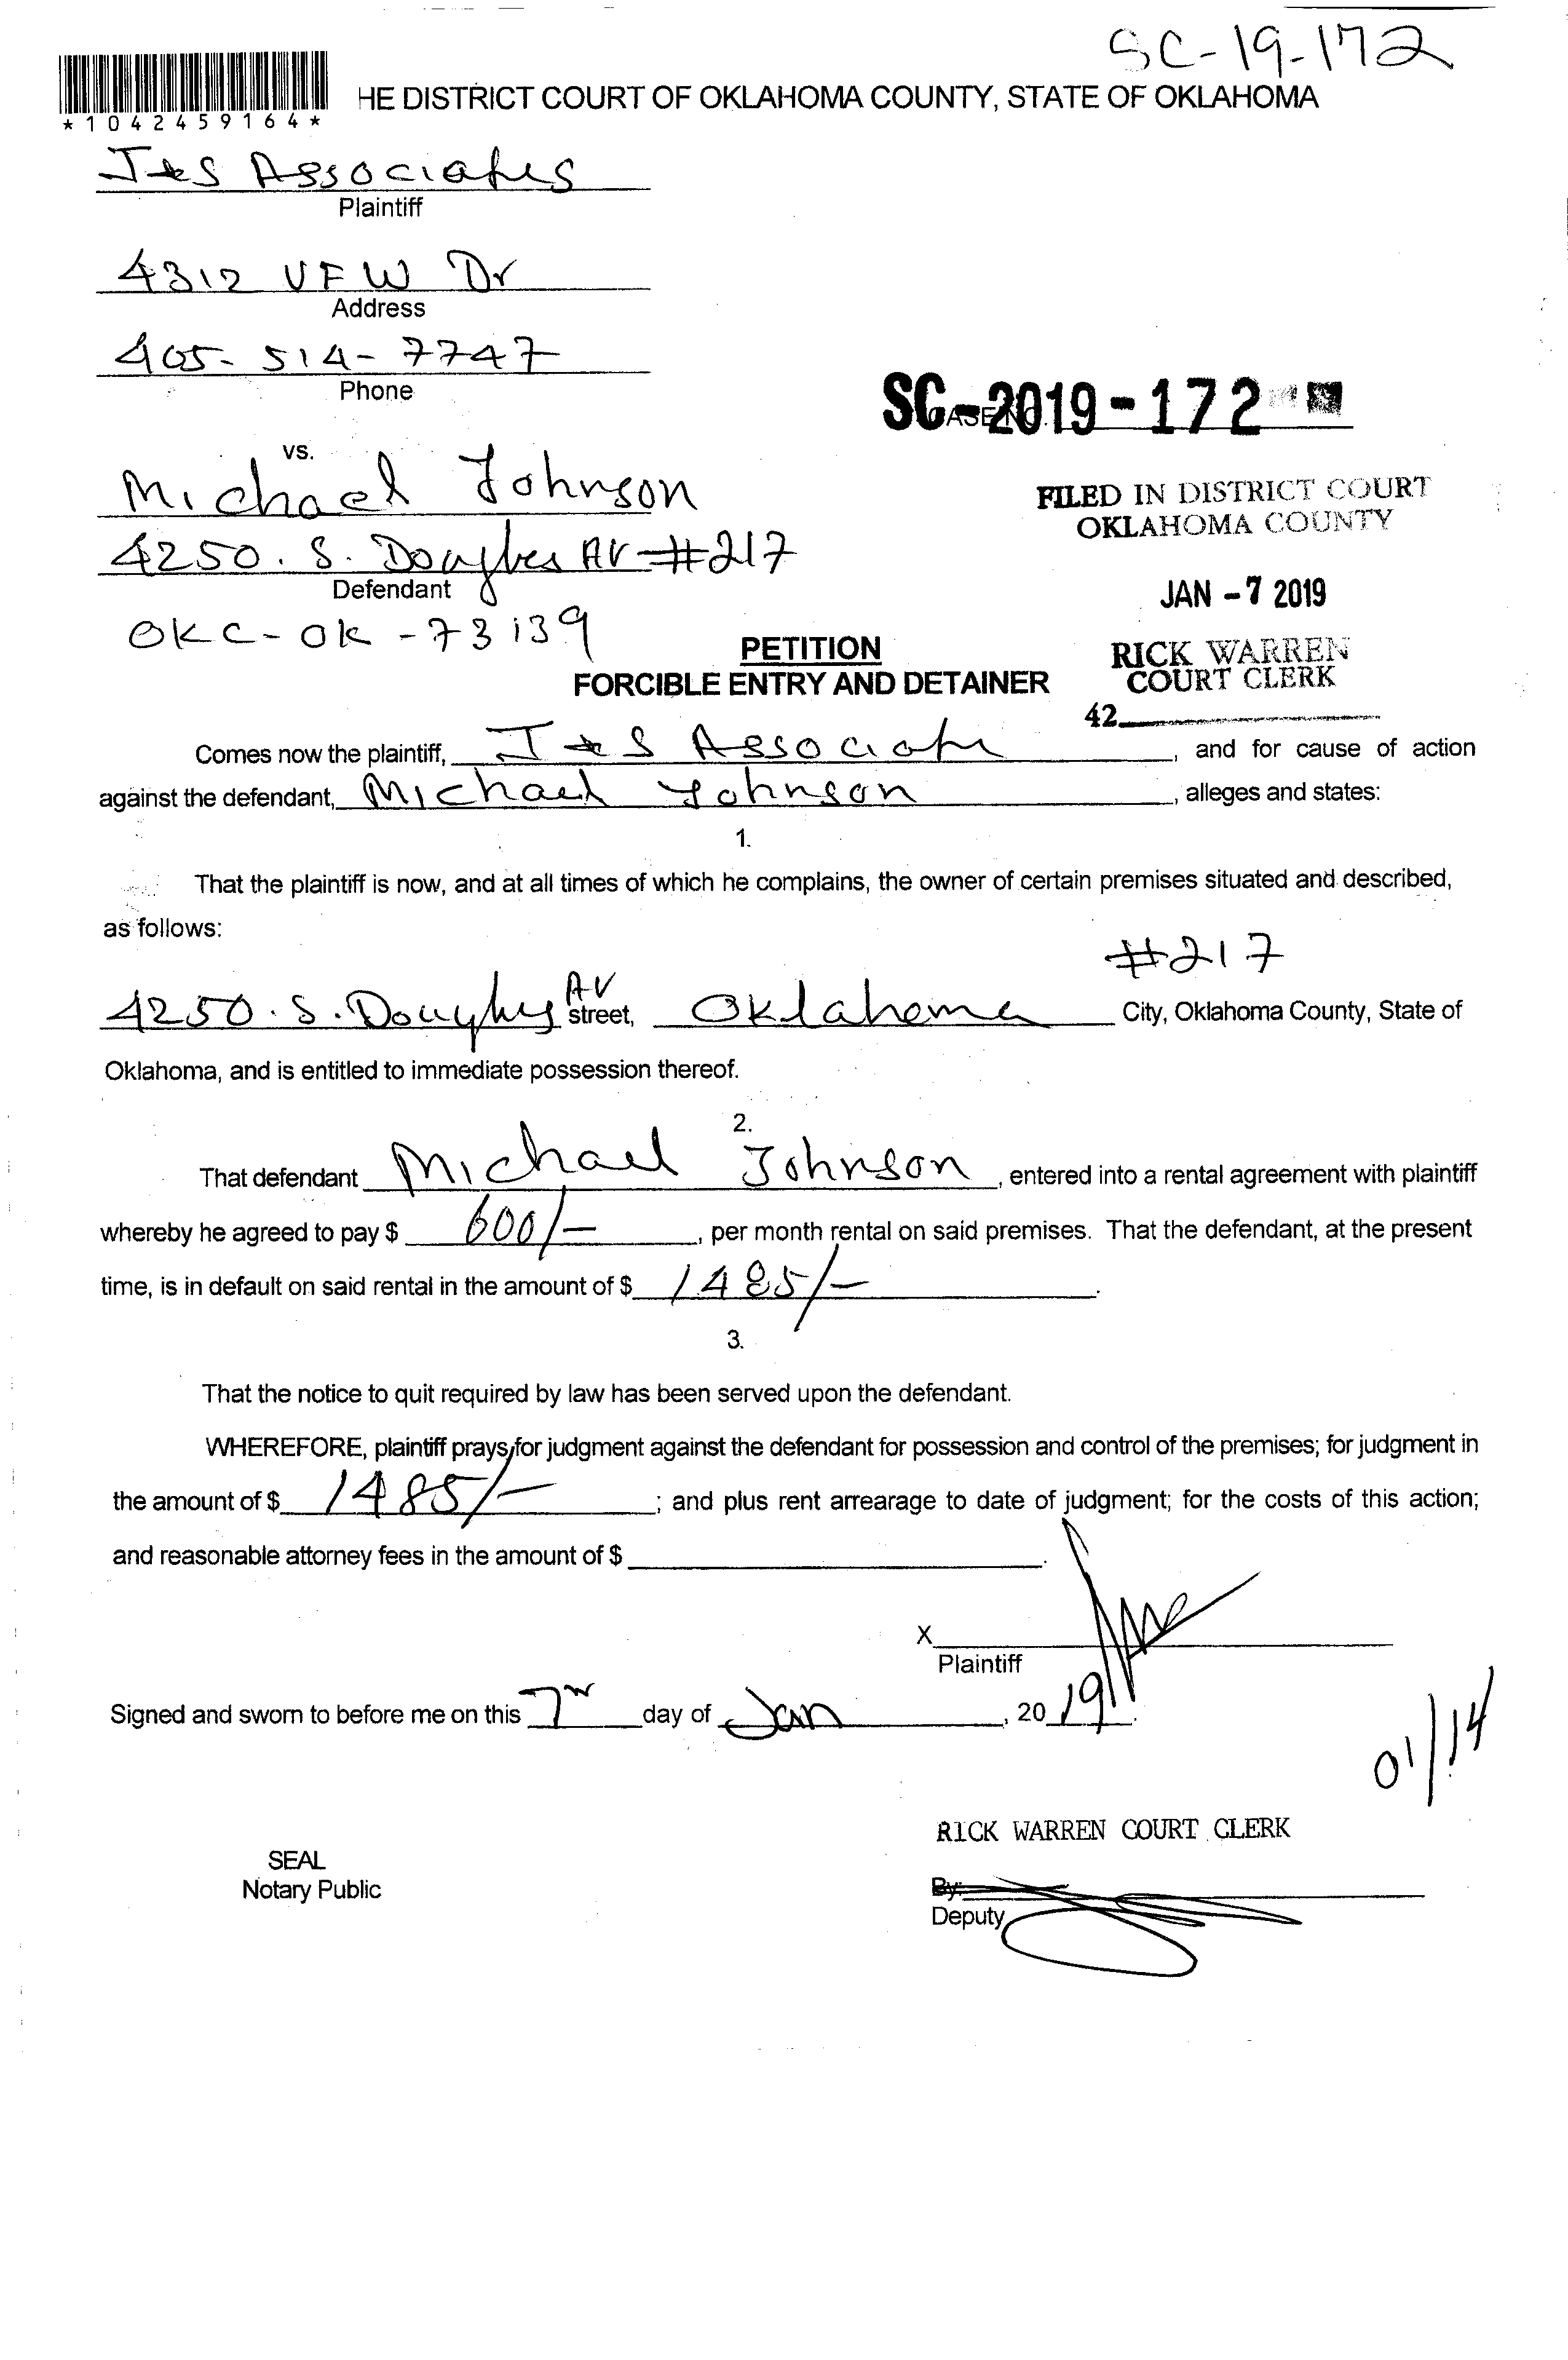 SC-19-172
*1042459164*
HE DISTRICT COURT OF OKLAHOMA COUNTY, STATE OF OKLAHOMA
J&S Associates
Plaintiff
4312 VFW Dr
Address
405-514-7747
Phone
SC-2019-172
CASE NO.
vs.
Michael Johnson
FILED IN DISTRICT COURT
OKLAHOMA COUNTY
4250. S. Douglas AV #217
Defendant
JAN -7 2019
OKC-OK-73139
PETITION
RICK WARREN
FORCIBLE ENTRY AND DETAINER
COURT CLERK
42
Comes now the plaintiff, J&S Associate, and for cause of action
against the defendant, Michael Johnson, alleges and states:
1.
That the plaintiff is now, and at all times of which he complains, the owner of certain premises situated and described,
as follows:
#217
4250. S. Douglas AV street, Oklahoma City, Oklahoma County, State of
Oklahoma, and is entitled to immediate possession thereof.
2.
That defendant Michael Johnson, entered into a rental agreement with plaintiff
whereby he agreed to pay $ 600/-, per month rental on said premises. That the defendant, at the present
time, is in default on said rental in the amount of $ 1485/-.
3.
That the notice to quit required by law has been served upon the defendant.
WHEREFORE, plaintiff prays for judgment against the defendant for possession and control of the premises; for judgment in
the amount of $ 1485/-; and plus rent arrearage to date of judgment; for the costs of this action;
and reasonable attorney fees in the amount of $ .
X
Plaintiff
Signed and sworn to before me on this 7th day of Jan, 2019.
01/14
RICK WARREN COURT CLERK
SEAL
Notary Public
By:
Deputy